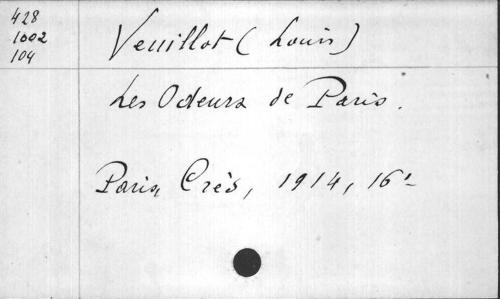 428
1002
104
Veuillot (Louis)
Les Odeurs de Paris.
Paris, Crès, 1914, 16°